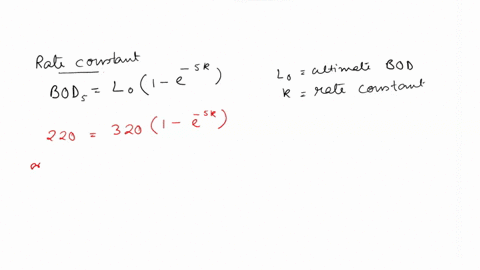 Rate constant
BOD₅ = L₀ (1 - e^-5k)
L₀ = altimate BOD
k = rate constant
220 = 320 (1 - e^-5k)